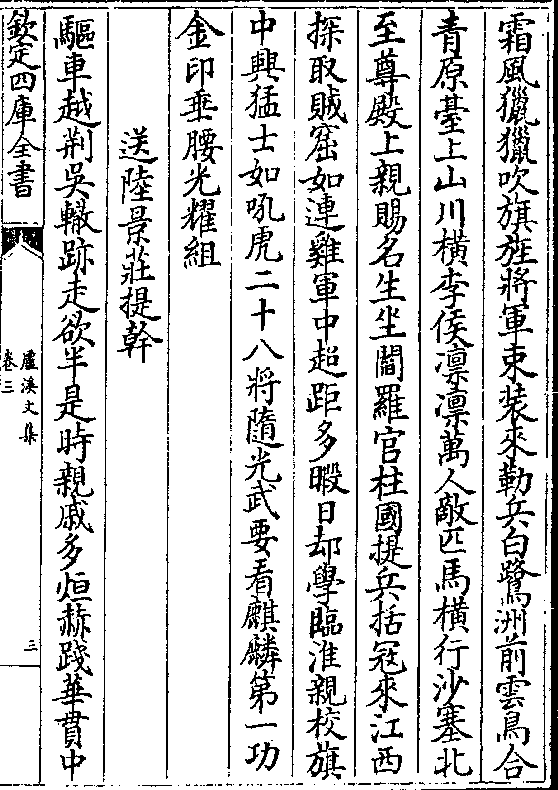 霜風獵獵吹旗旌將軍束裝來勒兵白鷺洲前雲鳥合
青原臺上山川橫李侯凜凜萬人敵匹馬橫行沙塞北
至尊殿上親賜名生坐閻羅官柱國提兵括冦來江西
探取賊窟如連雞軍中超距多暇日却學臨淮親校旗
中興猛士如吼虎二十八將隨光武要看麒麟第一功
金印垂腰光耀組
送陸景莊提幹
驅車越荆吳轍跡走欲半是時親戚多烜赫踐華貫中
欽定四庫全書
盧溪文集
卷三
三